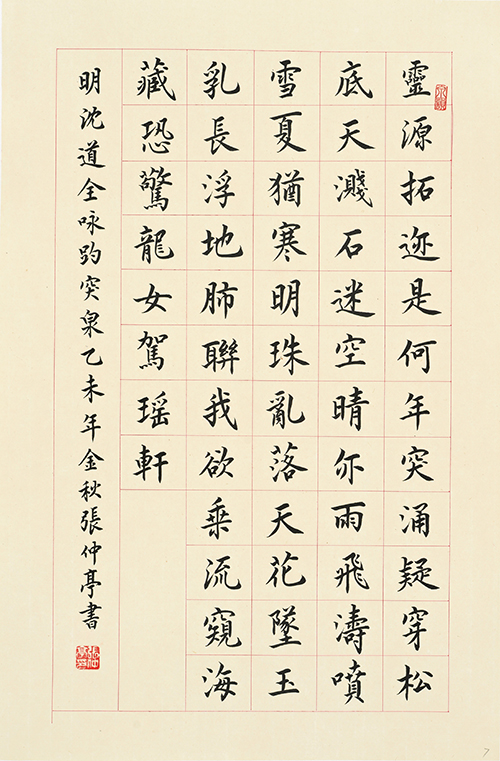 靈源拓迹是何年突涌疑穿松
底天濺石迷空晴亦雨飛濤噴
雪夏猶寒明珠亂落天花墜玉
乳長浮地肺聯我欲乘流窺海
藏恐驚龍女駕瑤軒
明沈道全咏趵突泉乙未年金秋張仲亭書